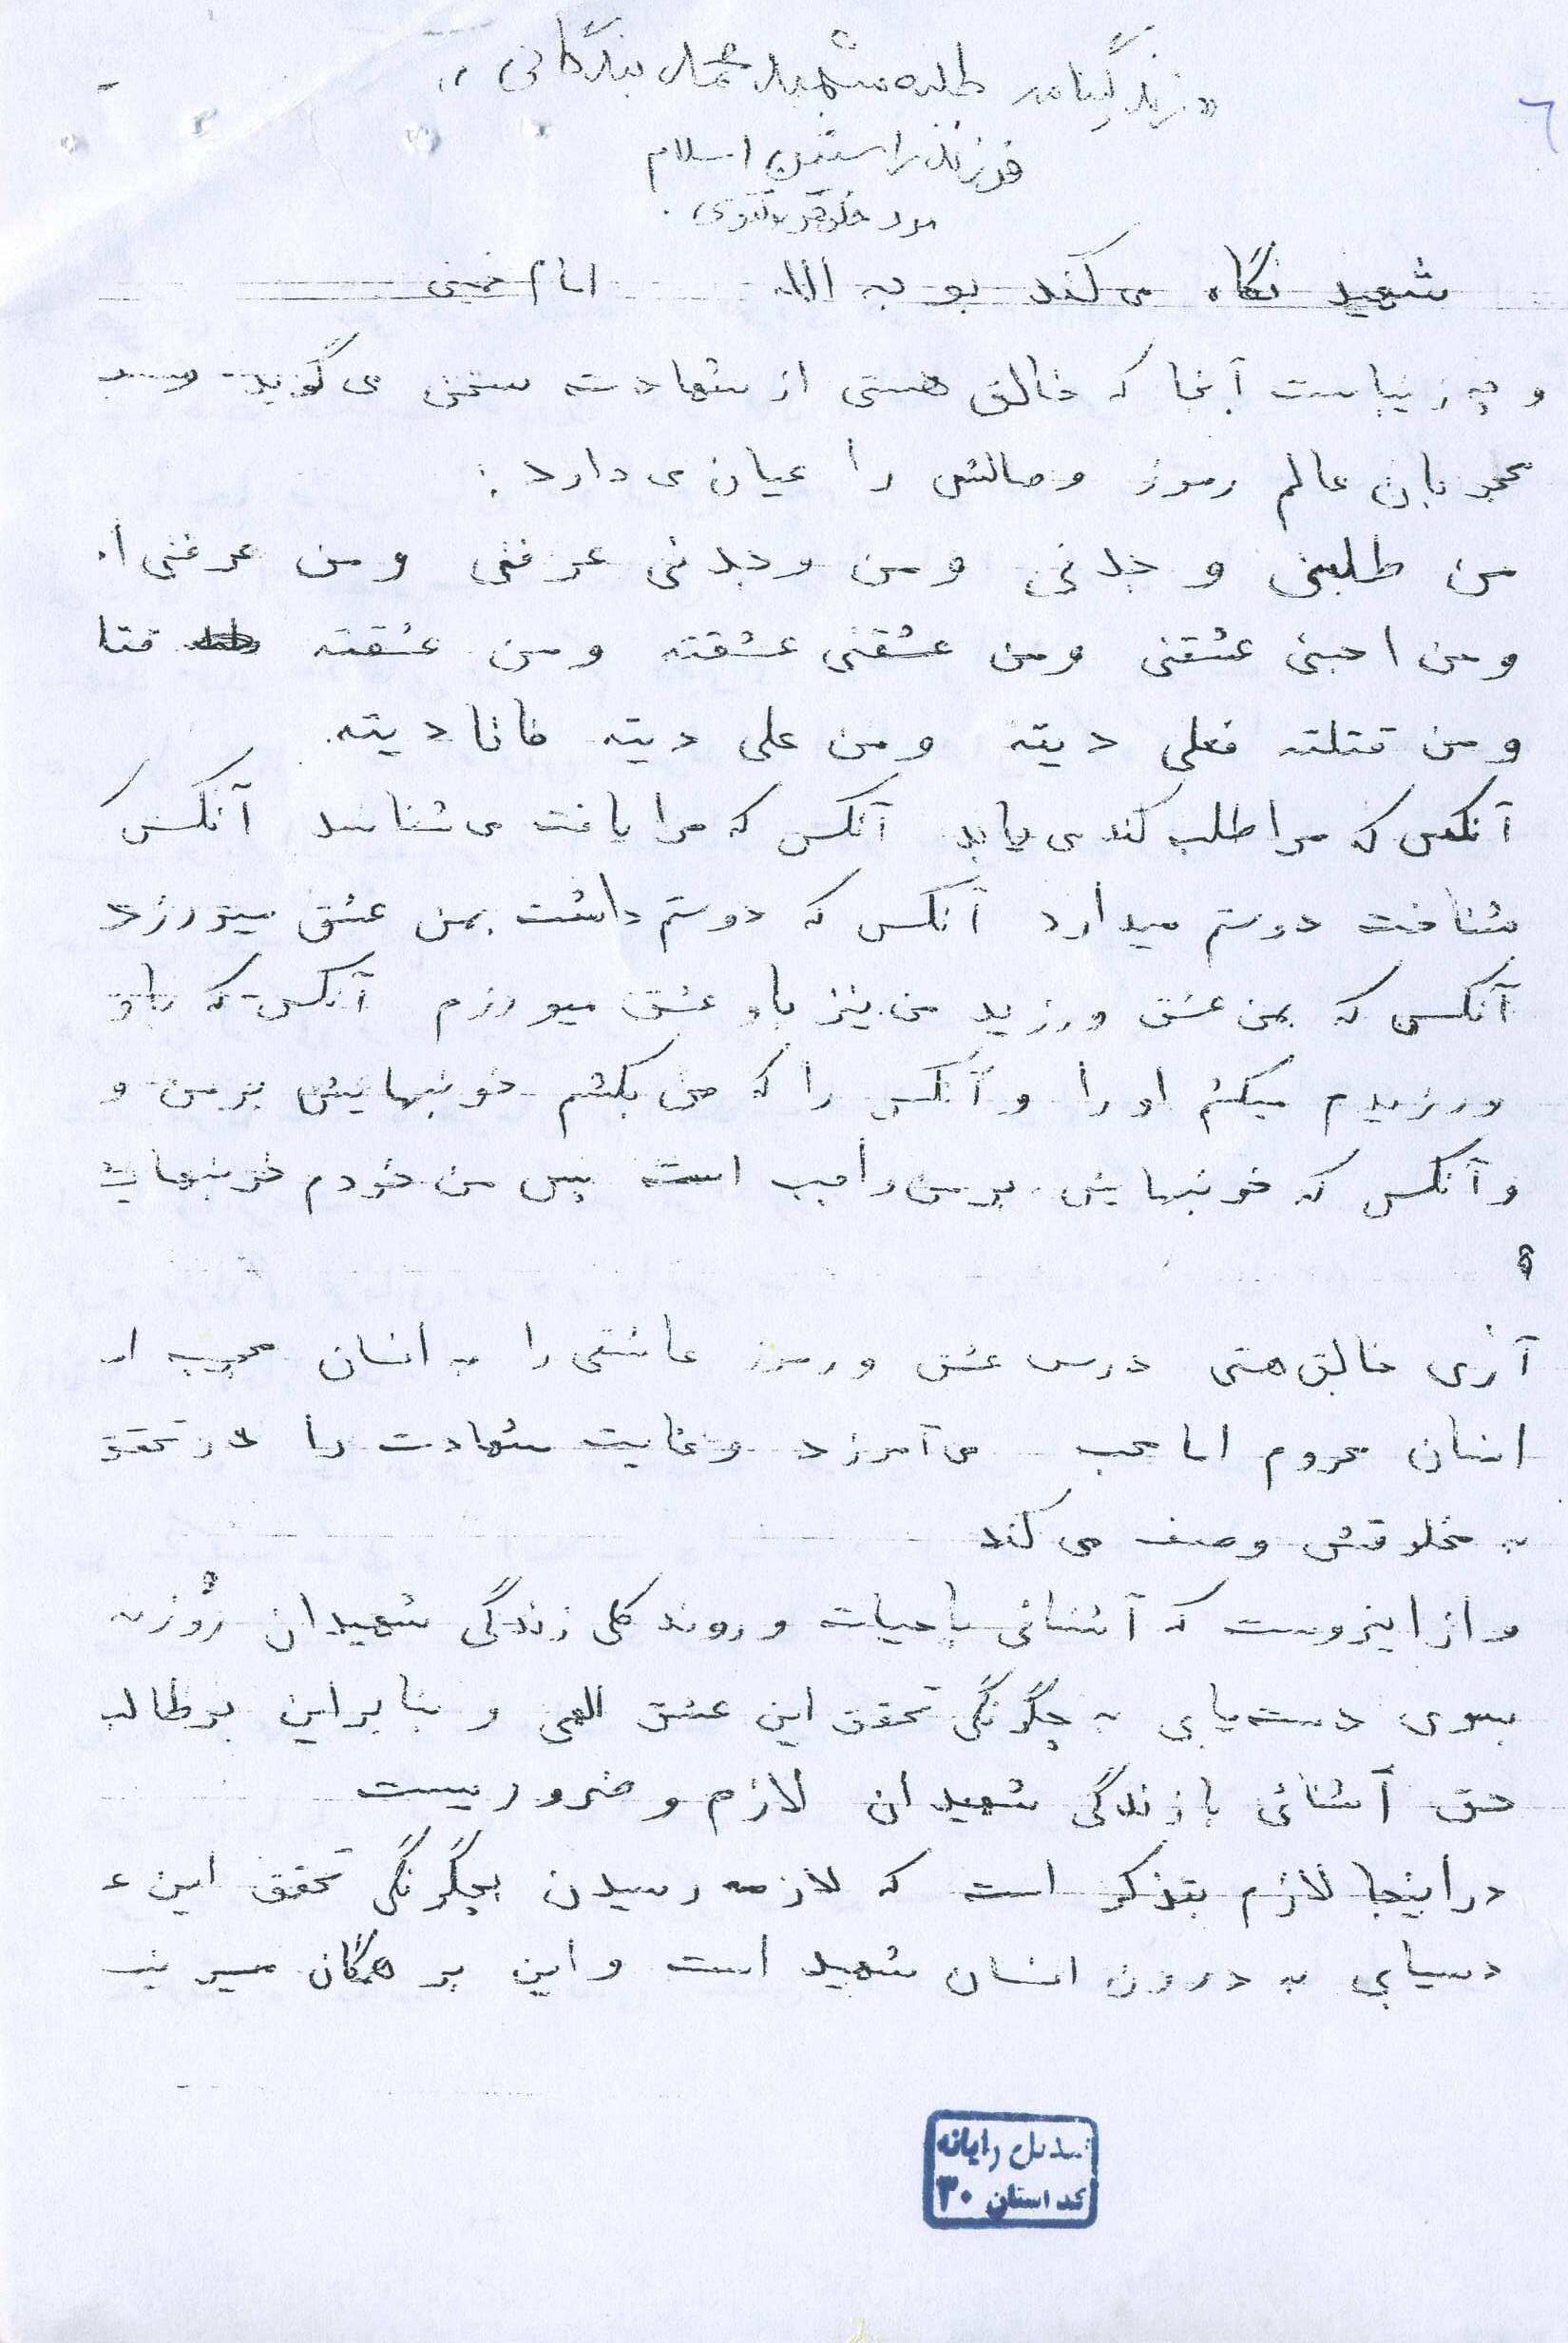 «زندگینامه طلبه شهید محمد بندگانی»
۶
فرزند راستین اسلام
شهید نگاه می‌کند بوجه الله امام خمینی
و چه زیباست آنجا که خالق هستی از شهادت سخن می‌گوید
محبوبان عالم رموز وصالش را عیان می‌دارد :
من طلبنی وجدنی ومن وجدنی عرفنی ومن عرفنی ا
ومن احبنی عشقنی ومن عشقنی عشقته ومن عشقته قتا
ومن قتلته فعلی دیته ومن علی دیته فانا دیته.
آنکس که مرا طلب کند می‌یابد آنکس که مرا یافت می‌شناسد آنکس
شناخت دوستم میدارد آنکس که دوستم داشت بمن عشق میورزد
آنکس که بمن عشق ورزید من نیز باو عشق میورزم آنکس که باو
ورزیدم میکشم او را و آنکس را که من بکشم خونبهایش بر من و
و آنکس که خونبهایش بر من واجب است پس من خودم خونبهای
آری خالق هستی درس عشق و رموز عاشقی را به انسان محبوب
انسان محروم اما محب می‌آموزد وغایت شهادت را در تحقق
به مخلوقش وصف می‌کند
و از اینروست که آشنائی با حیات و روند کلی زندگی شهیدان روزنه
بسوی دست‌یابی به چگونگی تحقق این عشق الهی و بنابراین بر طالب
حق آشنائی با زندگی شهیدان لازم و ضروریست
در اینجا لازم بتذکر است که لازمه رسیدن بچگونگی تحقق این ع
دسیابی به درون انسان شهید است و این بر همگان میسر نیـ
تبدیل رایانه
کد استان ۳۰